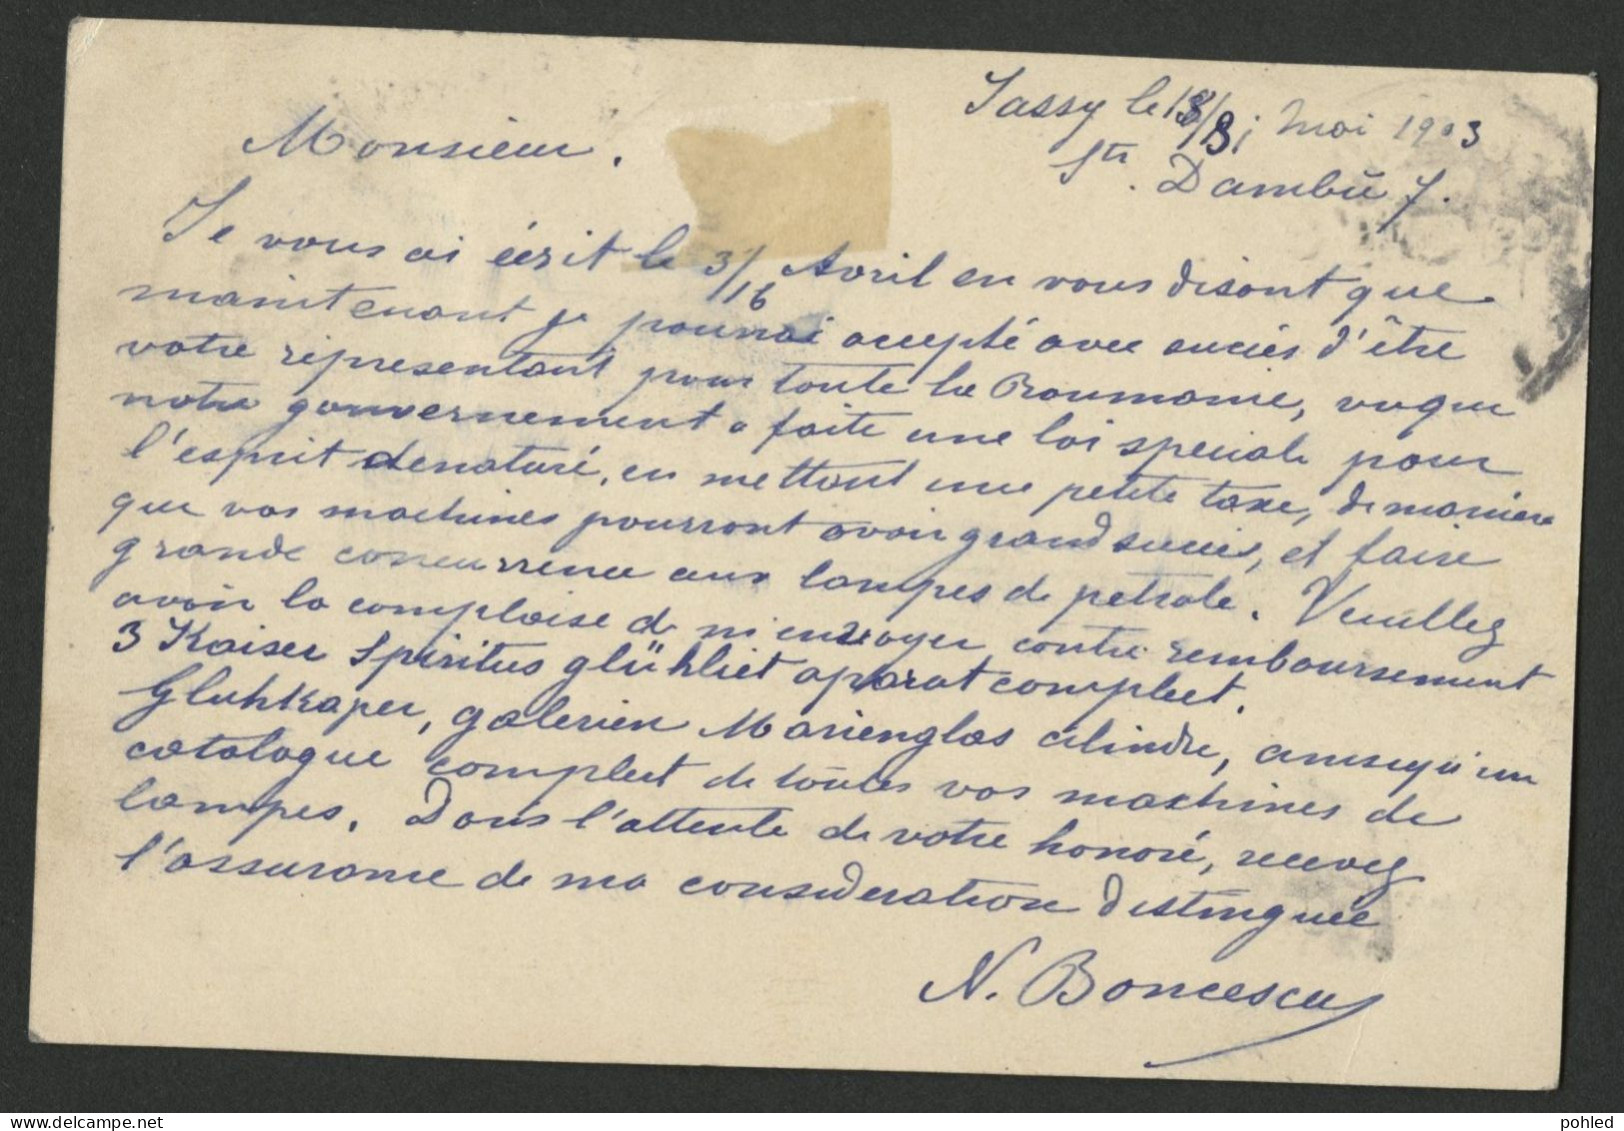 Jassy le 18/31 Mai 1903
Str. Dambŭ 7.
Monsieur.
Je vous ai écrit le 3/16 Avril en vous disant que
maintenant je pourrai accepté avec succés d'être
votre répresentant pour toute la Roumanie, vuque
notre gouvernement a faite une loi speciale pour
l'esprit denaturé, en mettant une petite taxe, de maniere
que vos machines pourront avoir grand succés, et faire
grande concurrence aux lampes de petrole. Veuillez
avoir la complaise de m'envoyer contre remboursement
3 Kaiser Spiritus glühliet aparat compleet.
Gluhkaper, galerien Marienglas cilindre, ainsequ'un
catalogue compleet de toutes vos machines de
lampes. Dans l'attente de votre honoré, recevez
l'assurance de ma consideration distinguee
N. Boncescu
pohled